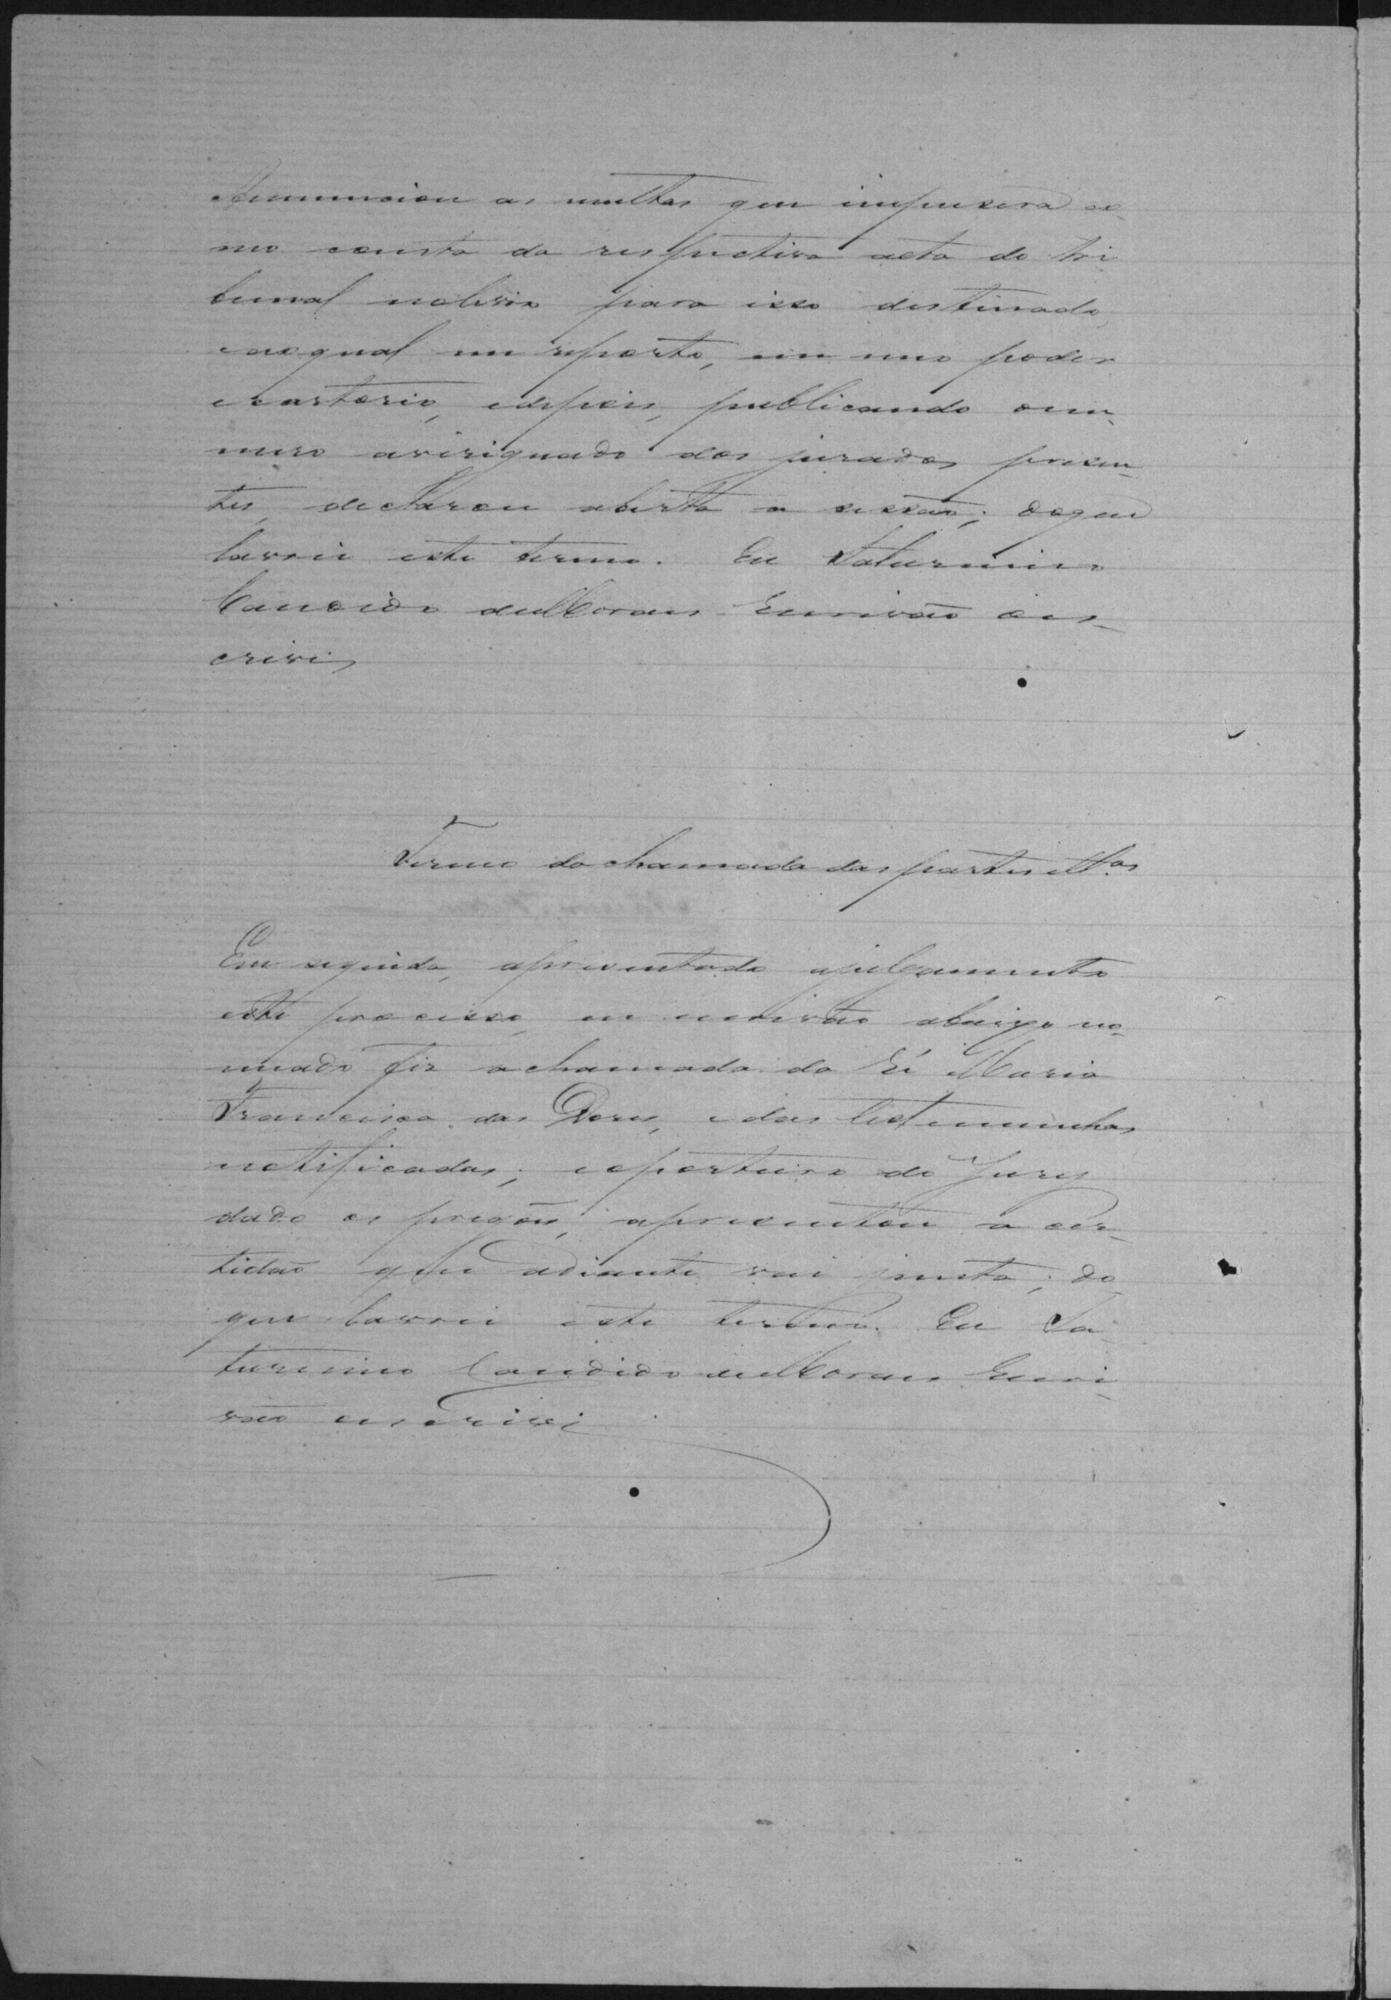 Annunciou as multas que impusera co-
mo consta da respectiva acta do tri
bunal nolivro para isso destinado,
enoqual me reporto, em meu poder
e cartorio, edepois, publicando onu-
mero averiguado dos jurados presen-
tes, declarou aberta a sessão; doque
lavrei este termo. Eu Saturnino
Candido deMoraes Escrivão oes-
crevi,
Termo da chamada das partes et.as
Em seguida, apresentado ajulgamento
este processo, eu escrivão abaixo no-
meado fiz a chamada da Ré Maria
Francisca das Dores, edas testemunhas
notificadas; eoporteiro do Jury
dado os pregões, apresentou a cer-
tidão que adiante vai junta; do
que lavrei este termo. Eu Sa-
turnino Candido deMoraes Escri-
vão escrevi